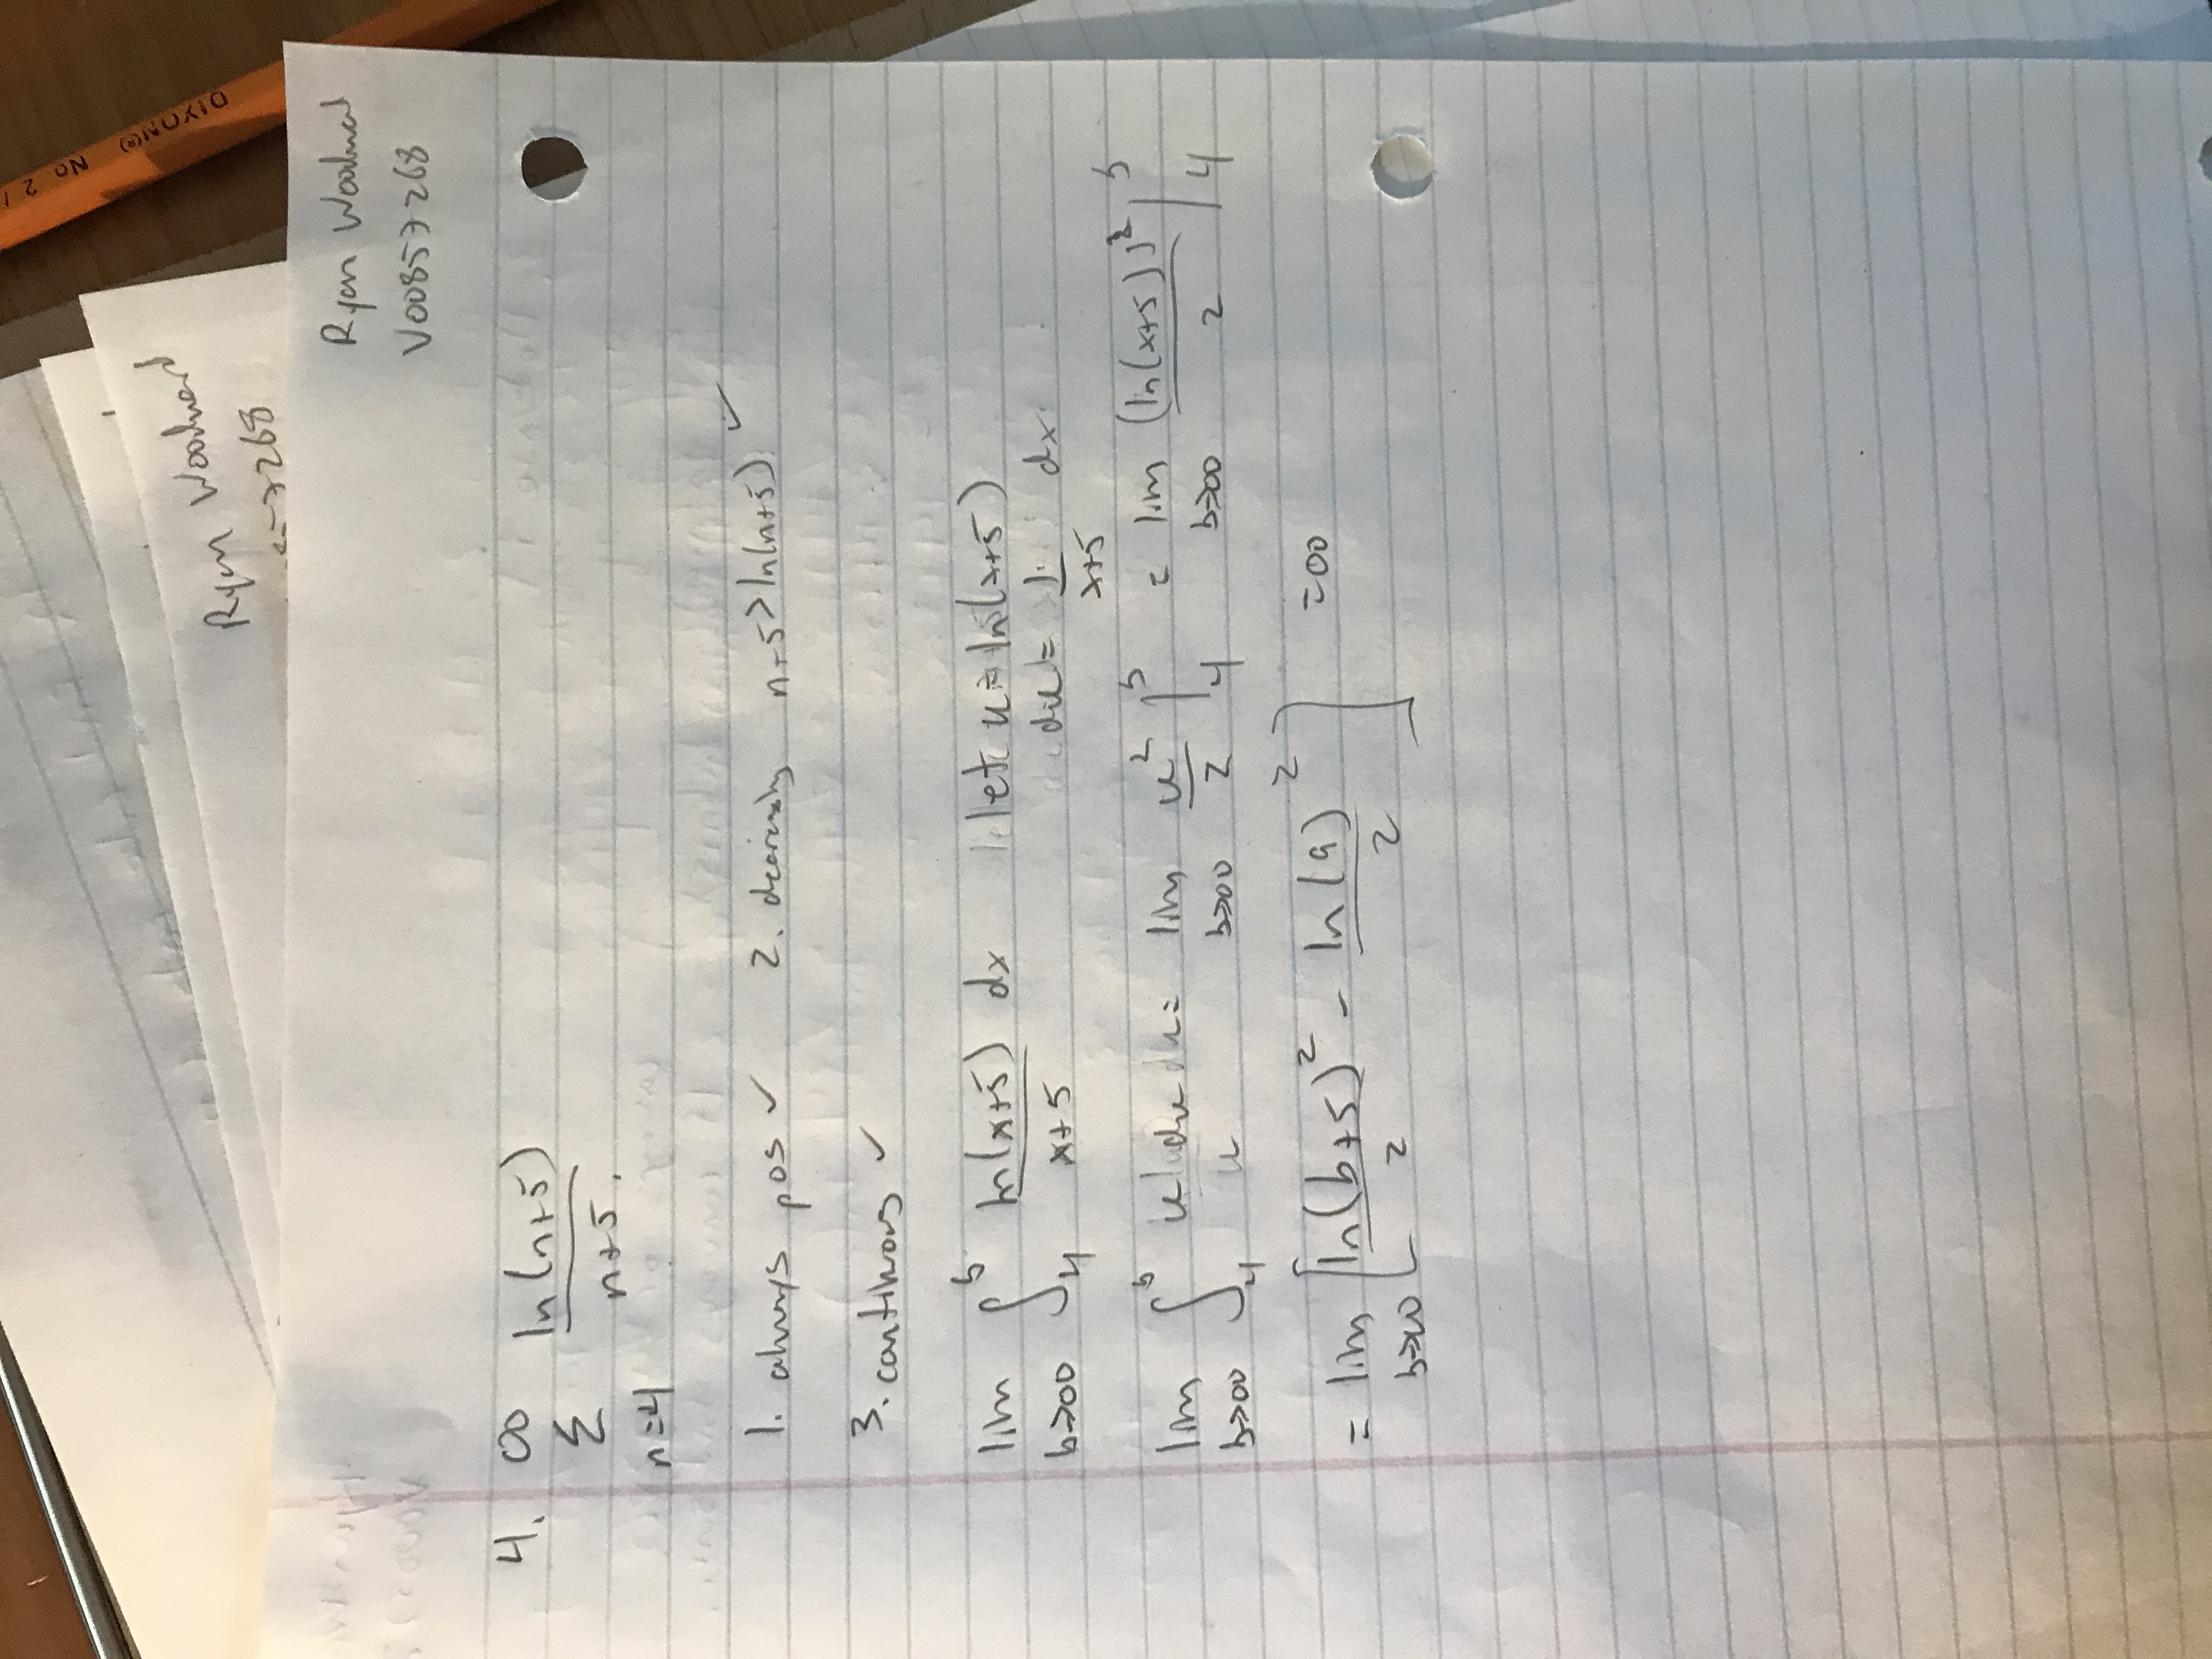 DIXON(R) No 2 /
Ryan Woodward
57268
Ryan Woodward
V00857268
4. ∞ Σ n=4 ln(n+5) / n+5.
1. always pos ✓ 2. decreasing n+5>ln(n+5) ✓
3. continuous ✓
lim b→∞ ∫ 4 b ln(x+5) / x+5 dx let u = ln(x+5)
du = 1 / x+5 dx
lim b→∞ ∫ 4 b u du = lim b→∞ u² / 2 | 4 b = lim b→∞ (ln(x+5))² / 2 | 4 b
= lim b→∞ [ ln(b+5)² / 2 - ln(9)² / 2 ] = ∞